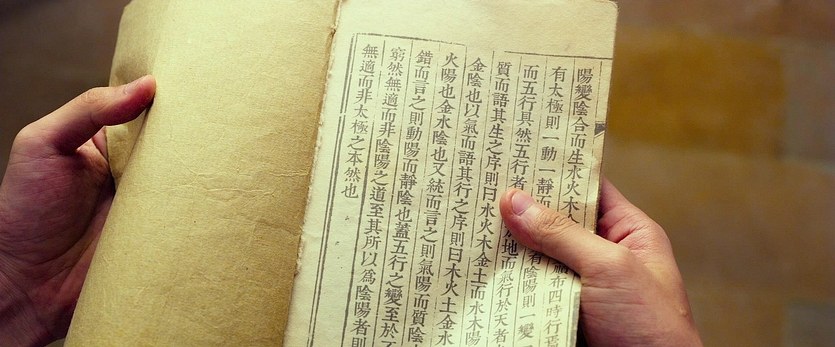 陽變陰合而生水火木金
有太極則一動一靜而
而五行具然五行者
質而語其生之序則曰水火木金土而水木陽
金陰也以氣而語其行之序則曰木火土金水
火陽也金水陰也又統而言之則氣陽而質陰
錯而言之則動陽而靜陰也蓋五行之變至於
窮然無適而非陰陽之道至其所以為陰陽者則
無適而非太極之本然也